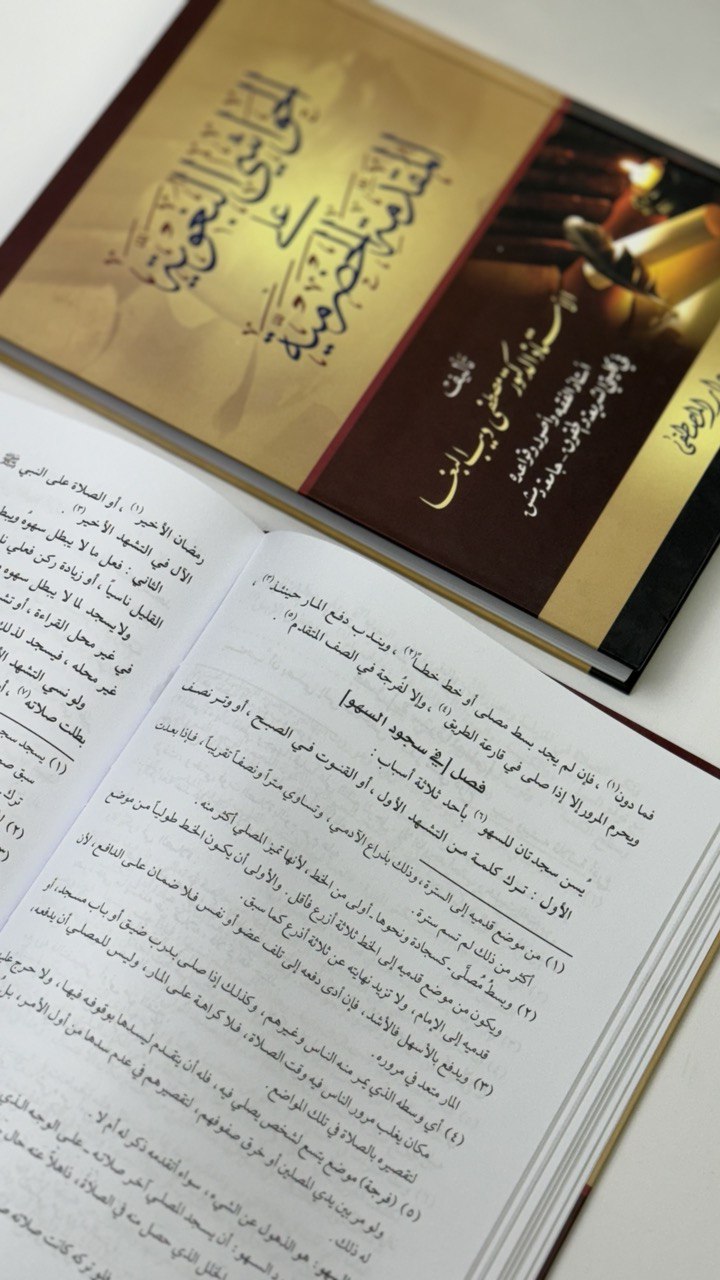 الحواشي النحوية
على
المقدمة الحضرمية
تأليف
الأستاذ الدكتور مصطفى ديب البغا
أستاذ الفقه وأصوله وقواعده
في كليتي الشريعة والحقوق - جامعة دمشق
دار المصطفى
فما دون(١)، فإن لم يجد بسط مصلى أو خط خطاً(٢)، ويندب دفع المار حينئذ(٣)،
ويحرم المرور إلا إذا صلى في قارعة الطريق(٤)، وإلا لفُرجة في الصف المتقدم(٥).
فصل [في سجود السهو]
يُسن سجدتان للسهو(٦) بأحد ثلاثة أسباب:
الأول: ترك كلمة من التشهد الأول، أو القنوت في الصبح، أو وتر نصف
(١) من موضع قدميه إلى السترة، وذلك بذراع الآدمي، وتساوي متراً ونصفاً تقريباً، فإذا بعدت
أكثر من ذلك لم تسم سترة.
(٢) وبسطُ مُصلّى كسجادة ونحوها أولى من الخط، لأنها تميز المصلي أكثر منه.
ويكون من موضع قدميه إلى الخط ثلاثة أذرع فأقل. والأولى أن يكون الخط طولياً من موضع
قدميه إلى الإمام، ولا تزيد نهايته عن ثلاثة أذرع كما سبق.
(٣) ويدفع بالأسهل فالأشد، فإن أدى دفعه إلى تلف عضو أو نفس فلا ضمان على الدافع، لأن
المار متعد في مروره.
(٤) أي وسطه الذي يمر منه الناس وغيرهم، وكذلك إذا صلى بدرب ضيق أو باب مسجد، أو
مكان يغلب مرور الناس فيه وقت الصلاة، فلا كراهة على المار، وليس للمصلي أن يدفعه،
لتقصيره بالصلاة في تلك المواضع.
(٥) (فرجة) موضع يتسع لشخص يصلي فيه، فله أن يتقدم ليسدها بوقوفه فيها، ولا حرج عليه
ولو مر بين يدي المصلين أو خرق صفوفهم، لتقصيرهم في عدم سدها من أول الأمر، بل
له ذلك.
السهو: هو الذهول عن الشيء، سواء أتقدمه ذكر له أم لا.
السهو: أن يسجد المصلي آخر صلاته - على الوجه الذي
الخلل الذي حصل منه في الصلاة، ذاهلاً عنه حال
لو تركه كانت صلاته
رمضان الأخير(١)، أو الصلاة على النبي ﷺ
الآل في التشهد الأخير(٣).
الثاني: فعل ما لا يبطل سهوه ويبطل
القليل ناسياً، أو زيادة ركن فعلي
ولا يسجد لما لا يبطل سهوه
في غير محل القراءة، أو
غير محله، فيسجد لذلك
ولو نسي التشهد
بطلت صلاته(٧)،
(١) يسجد
سبق
ترك
(٢)
(٣)